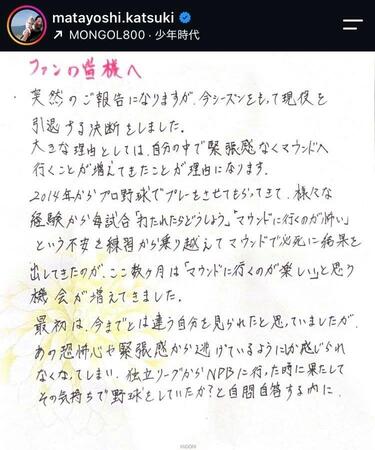 matayoshi.katsuki
MONGOL800・少年時代
ファンの皆様へ
突然のご報告になりますが、今シーズンをもって現役を
引退する決断をしました。
大きな理由としては、自分の中で緊張感なくマウンドへ
行くことが増えてきたことが理由になります。
2014年からプロ野球でプレーをさせてもらってきて、様々な
経験から毎試合「打たれたらどうしよう」「マウンドに行くのが怖い」
という不安を練習から乗り越えてマウンドで必死に結果を
出してきたのが、ここ数ヶ月は「マウンドに行くのが楽しい」と思う
機会が増えてきました。
最初は、今までとは違う自分を見られたと思っていましたが、
あの恐怖心や緊張感から逃げているようにしか感じられ
なくなってしまい、独立リーグからNPBに行った時に果たして
その気持ちで野球をしていたか?と自問自答する内に、